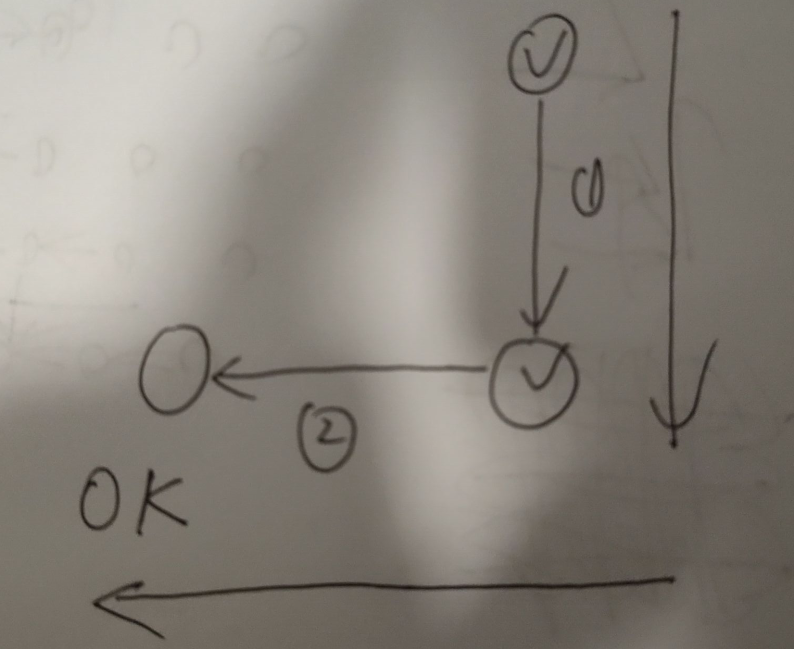 ①
②
OK